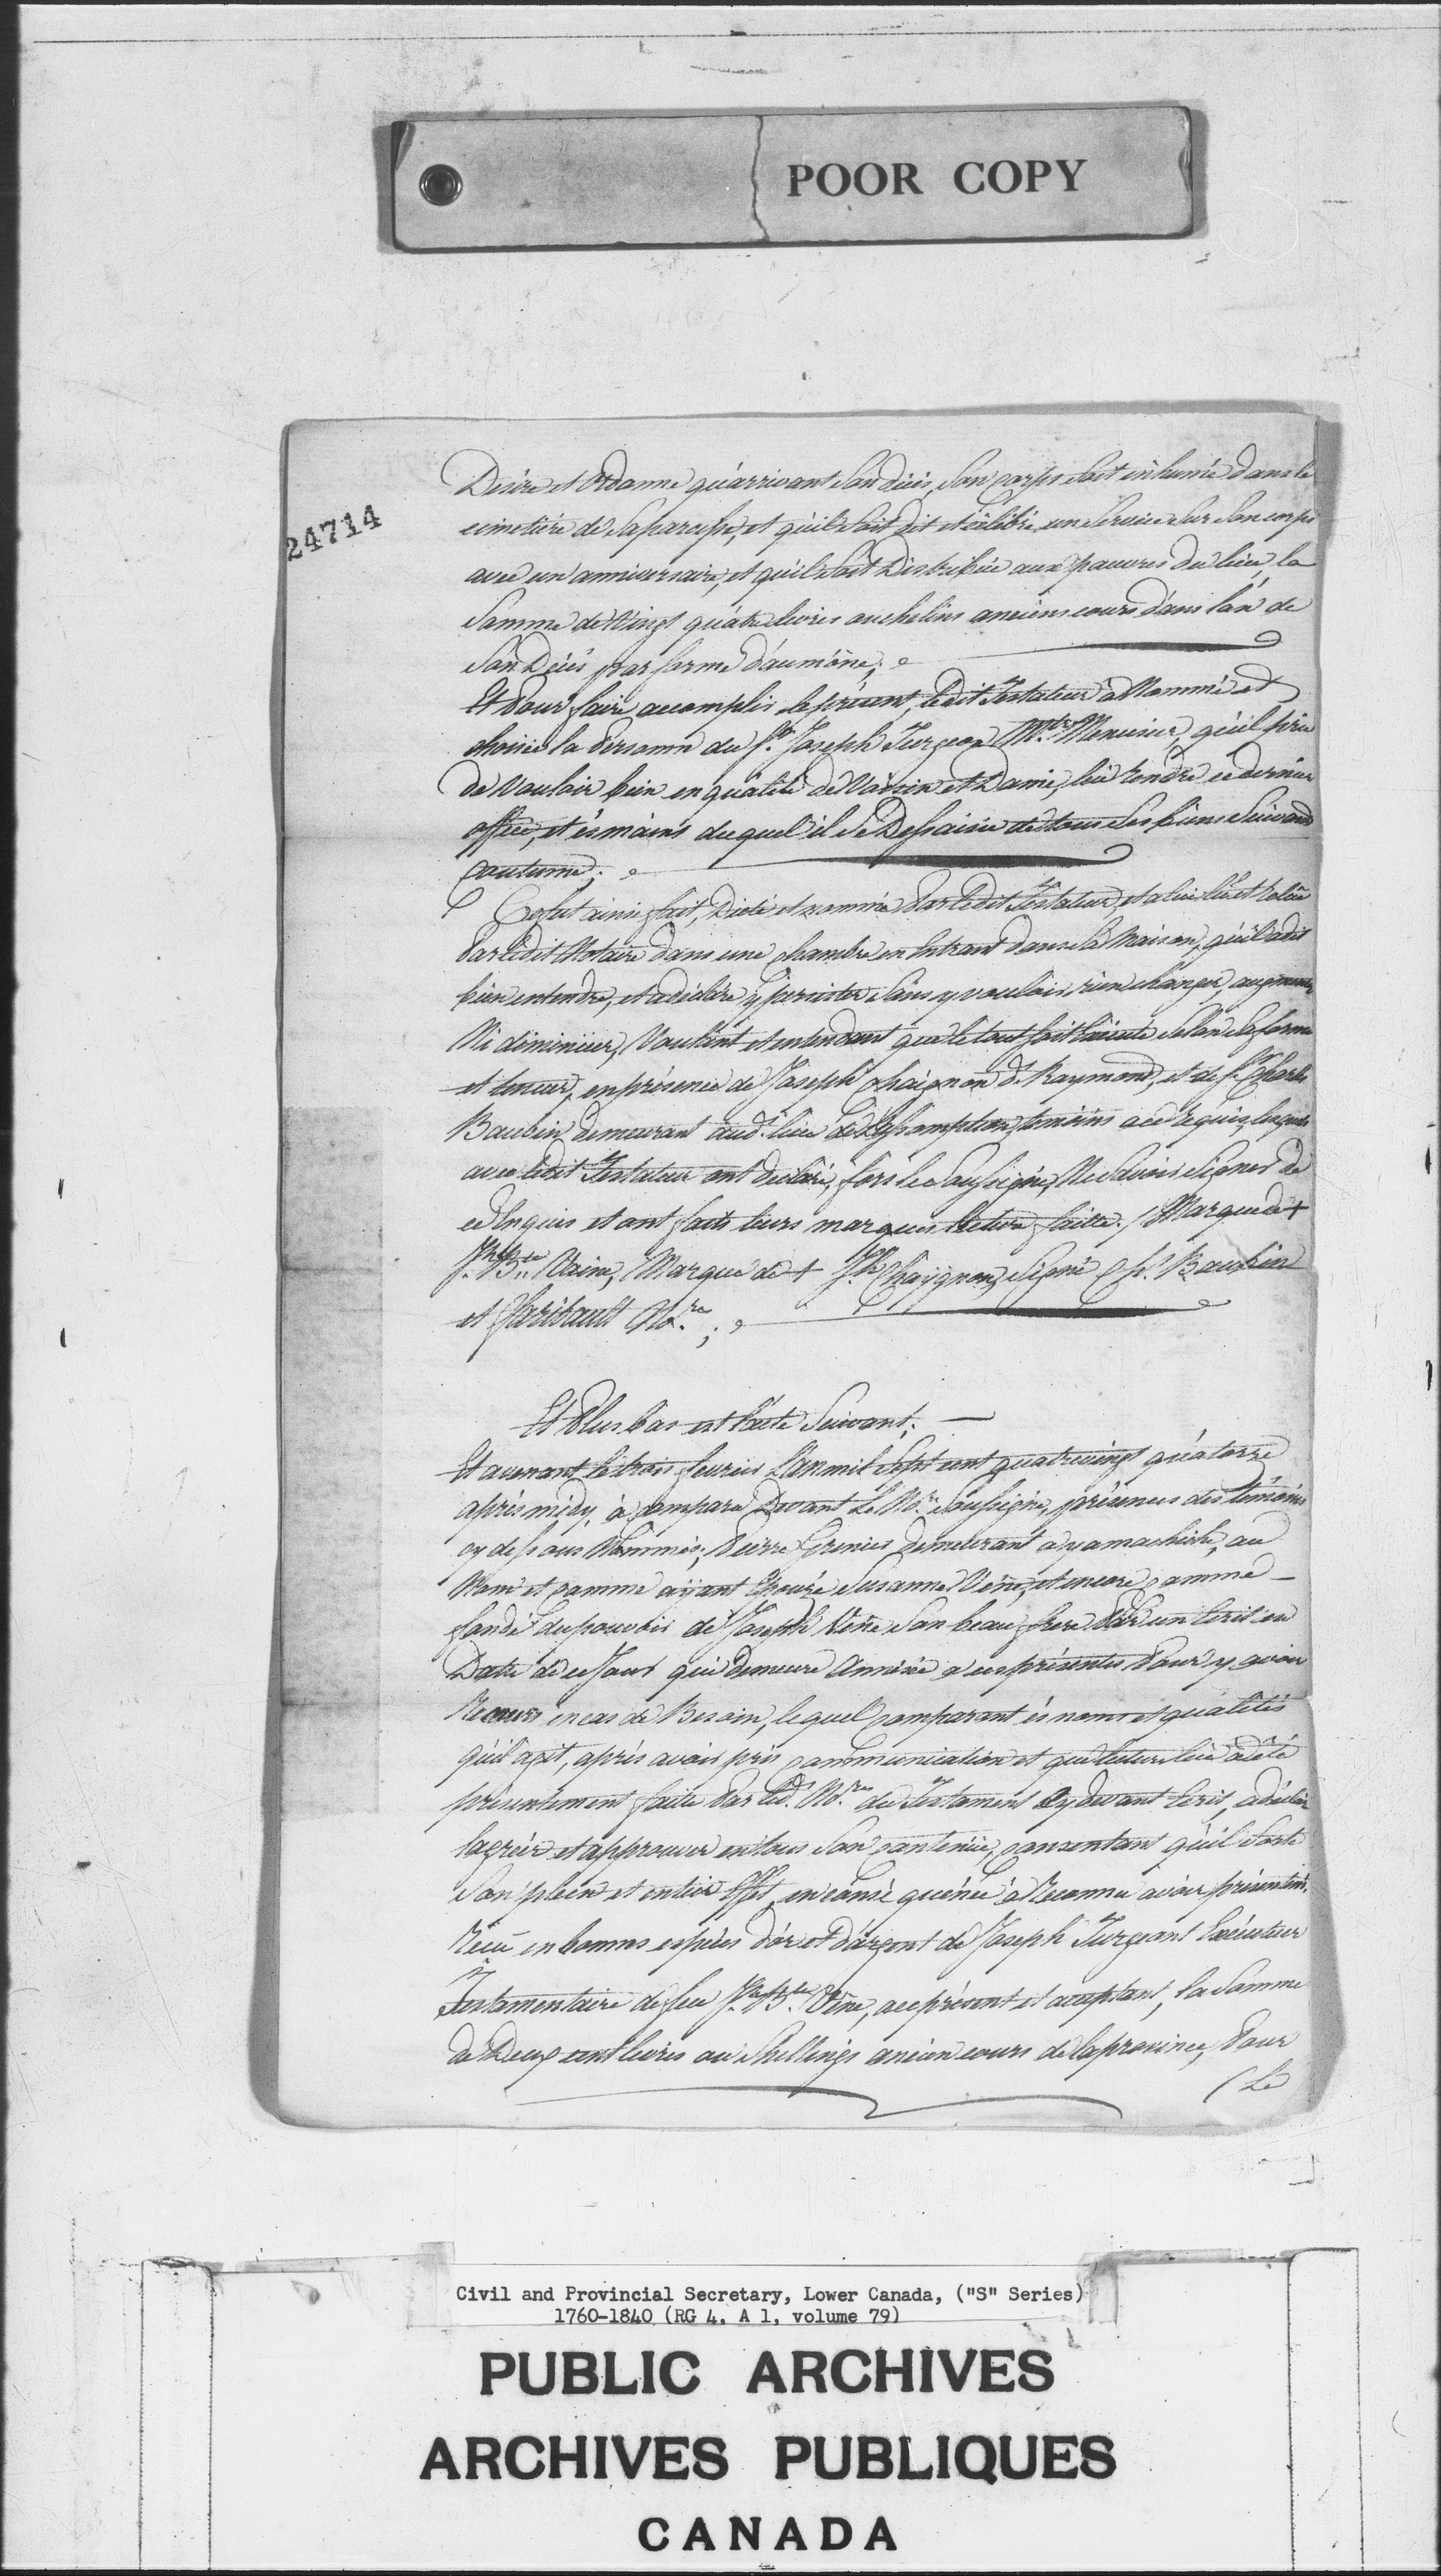 POOR COPY
24714
Désire et Ordonne qu'arrivant son décès, son corps soit inhumé dans le
cimetière de sa paroisse, et qu'il soit dit et célébré un service sur son corps
avec un anniversaire, et qu'il soit Distribué aux pauvres du lieu, la
Somme de Vingt quatre livres ou chelins ancien cours dans l'an de
Son Décès par forme d'aumône;
Et Pour faire accomplir le présent, ledit Testateur a Nommé et
choisie la Personne du Sr. Joseph Turgeon Mtre. Menuisier, qu'il prie
de Vouloir bien en qualité de Voisin et D'amie, lui rendre ce dernier
office, et ès mains duquel il se Dessaisie de tous ses biens suivant
Coutume;
Ce fut ainsi fait, Dicté et nommé Par ledit Testateur, et a lui lû et relû
Par ledit Notaire dans une chambre en Entrant dans sa Maison, qu'il a dit
bien entendre, et a déclaré y persister sans y vouloir rien changer, augmenter
Ni diminüer, Voulant et entendant que le tout soit Exécuté selon sa forme
et teneur, en présence de Joseph Chaignon dt. Raymond, et de Sr. Charles
Beaubin demeurant aud. lieu de L'assomption, temoins a ce requis, lesquels
avec ledit Testateur ont déclaré, fors le Soussigné, Ne Savoir Signer de
ce Enquis et ont faits leurs marques lecture faitte. / Marque de +
Jn. Bte. Vaine, Marque de + Jh. Chaignon, signé Ch. Beaubin
et Faribault Nore.;
Et Plus bas est l'acte Suivant; —
Et avenant le trois fevrier L'an mil Sept cent quatrevingt quatorze
après midy, a comparu Devant Le Nre. soussigné, présences des témoins
cy dessous Nommés; Pierre Grenier demeurant a yamachiche, au
Nom et comme ayant Epouzé Susanne Véne, et encore comme
fondé du pouvoir de Joseph Véne son beau frere Par un Ecrit en
Datte de ce Jour qui demeure Annexée a ces présentes Pour y avoir
Recours en cas de Besoin, lequel comparant ès noms et qualités
qu'il agit, après avoir pris communication et que lecture lui a été
présentement faitte Par led. Nore. du Testament Cy devant Ecrit, a déclaré
l'agréer et approuver en tous Son contenüe, consentant qu'il Sorte
Son plein et entier Effet, en conséquence a Reconnu avoir présentemt.
Reçu en bonnes espèces d'or et d'argent de Joseph Turgeant Exécuteur
Testamentaire de feu Jn. Bte. Véne, a ce présent et acceptant, la Somme
de Deux cent livres ou Shellings ancien cours de la province, Pour
(Le
Civil and Provincial Secretary, Lower Canada, ("S" Series)
1760-1840 (RG 4, A 1, volume 79)
PUBLIC ARCHIVES
ARCHIVES PUBLIQUES
CANADA